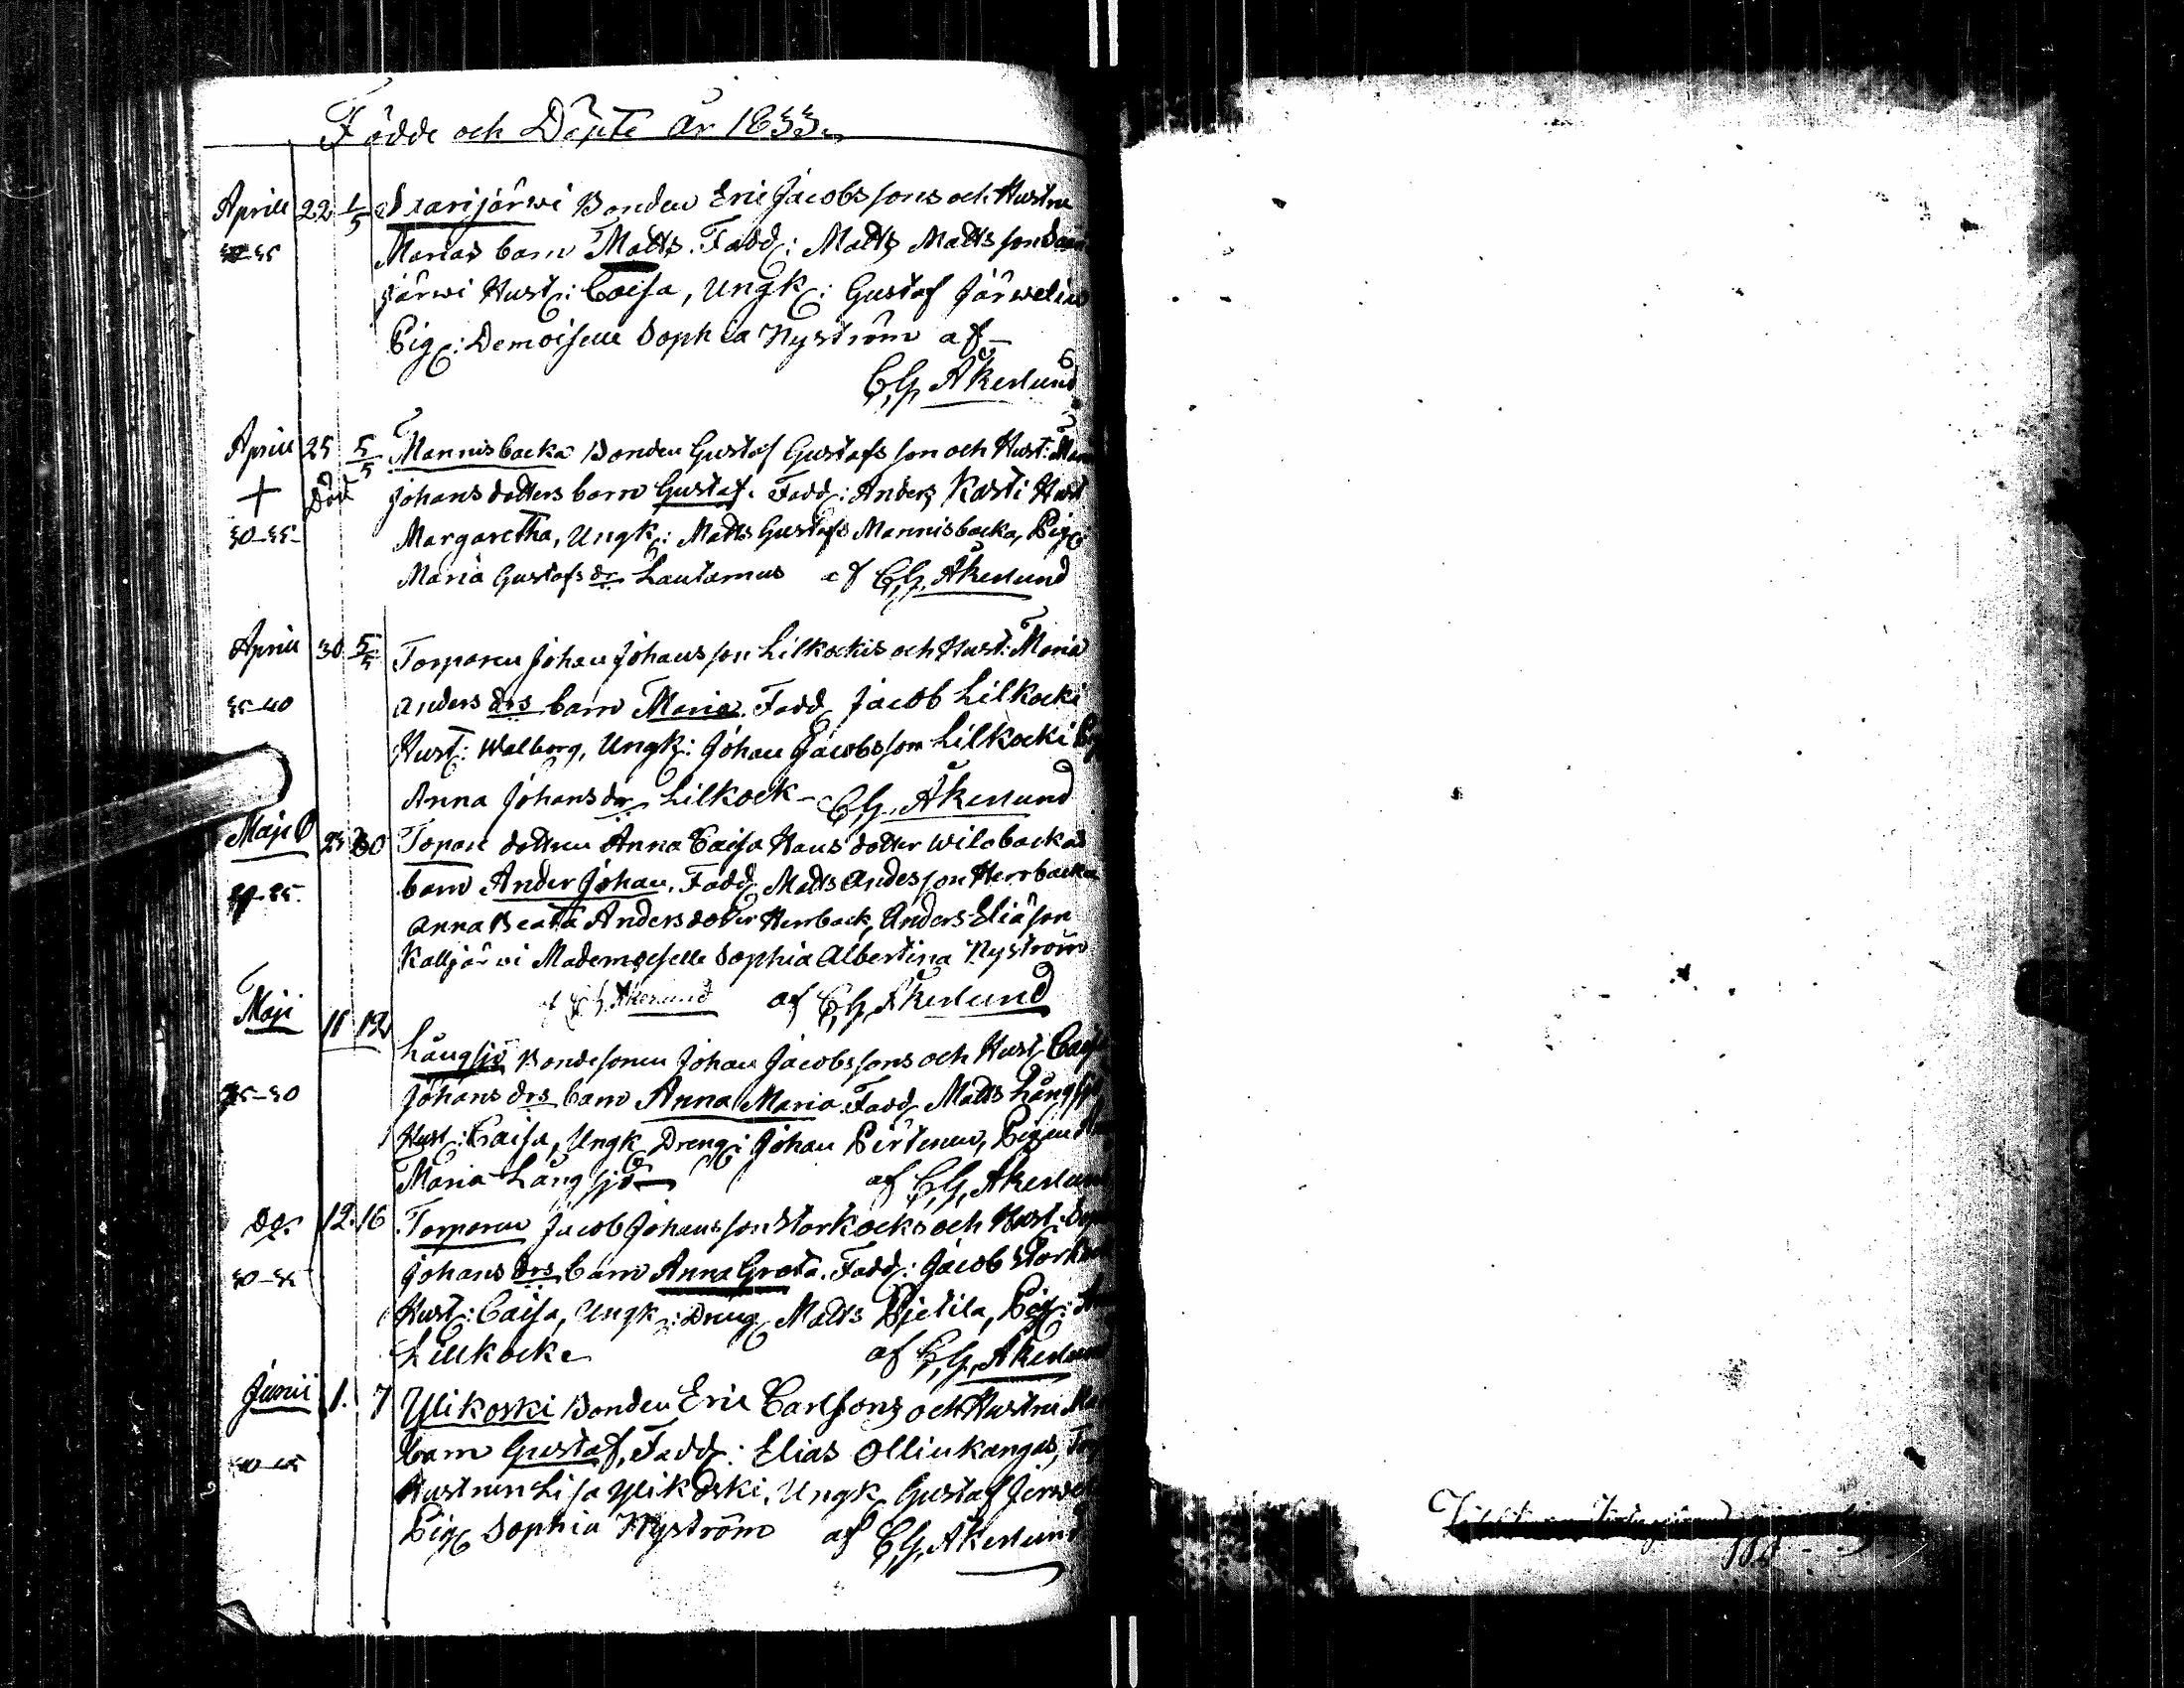 Födde och Döpte År 1833.
Aprill 22 1/5 Saarijärwi Bonden Eric Jacobssons och Hustru
35 Marias barn Matts. Fadd: Matts Mattsson Saari
järwi Hust: Caisa, Ungk: Gustaf Järwelin
Pig: Demoiselle Sophia Nyström af
C.G. Åkerlund
Aprill 25 5/5 Mannisbacka Bonden Gustaf Gustafsson och Hust: Maria
+ Död Johansdotters barn Gustaf. Fadd: Anders Kasti Hust
30-35 Margaretha, Ungk: Matts Gustafs Mannisbacka, Pig:
Maria Gustafs dr Lautamus af C.G. Åkerlund
Aprill 30 5/5 Torparen Johan Johansson Lilkockis och Hust: Maria
35-40 Anders drs barn Maria. Fadd Jacob Lilkocki
Hust: Walborg, Ungk: Johan Jacobsson Lilkocki Pig
Anna Johans dr Lilkock - C.G. Åkerlund
Maji 30 dottren Anna Caisa Hans dotter Wilobackas
25 barn Ander Johan. Fadd Matts Andersson Herrbacka
Anna Beata Andersdotter Herrback, Anders Eliason
Kalljärwi Mademoiselle Sophia Albertina Nyström
af C.G. Åkerlund af C.G. Åkerlund
Maji 11 12
Långsjö Bondesonen Johan Jacobssons och Hust Caisa
25-30 Johans drs barn Anna Maria. Fadd Matts Långsjö
Hust: Caisa, Ungk Dreng: Johan Pirtenen, Pigan
Maria Långsjö af C.G. Åkerlund
do 12. 16 Torparen Jacob Johansson Storkocks och Hust:
30-35 Johans drs barn Anna Greta. Fadd: Jacob Storkock
Hust: Caisa, Ungk: Dreng Matts Pjetila, Pig:
Lillkock af C.G. Åkerlund
Junii 1. 7 Ylikoski Bonden Eric Carlsons och Hustru
40-45 barn Gustaf, Fadd: Elias Ollinkangas,
Hustrun Lisa Ylikoski, Ungk Gustaf Jerwelin
Pig Sophia Nyström af C.G. Åkerlund